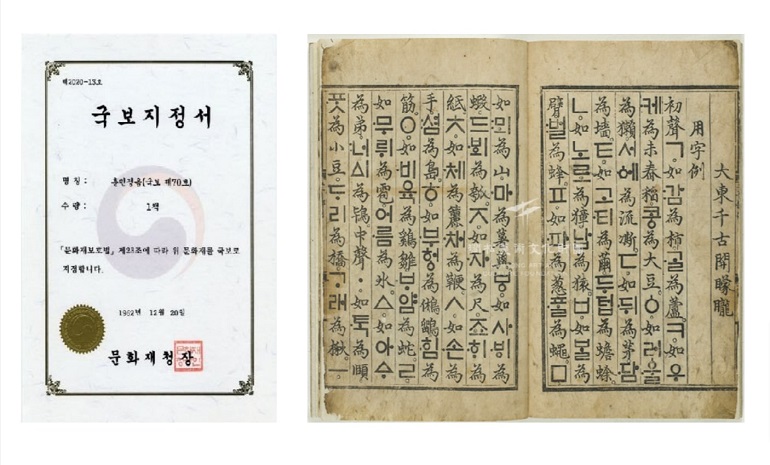 제2020-13호
국보지정서
명 칭 : 훈민정음(국보 제70호)
수 량 : 1책
「문화재보호법」 제23조에 따라 위 문화재를 국보로
지정합니다.
1962년 12월 20일
문화재청장
大東千古開矇矓
用字例
初聲ㄱ。如감為柿。ᄀᆞᆯ為蘆。ㅋ。如우
케為未舂稻。콩為大豆。ㆁ。如러울
為獺。서ᅌᅦ為流凘。ㄷ。如뒤為茅。담
為墻。ㅌ。如고티為繭。두텁為蟾蜍。
ㄴ。如노로為獐。납為猿。ㅂ。如ᄇᆞᆯ為
臂。벌為蜂。ㅍ。如파為葱。ᄑᆞᆯ為蠅。ㅁ
如뫼為山。마為薯藇。ㅸ。如사ᄫᅵ為
蝦。드ᄫᅴ為瓠。ㅈ。如자為尺。죠ᄒᆡ為
紙。ㅊ。如체為籭。채為鞭。ㅅ。如손為
手。셤為島。ㅎ。如부헝為鵂鶹。힘為
筋。ㅇ。如비육為鷄雛。ᄇᆞ얌為蛇。ㄹ。
如무뤼為雹。어름為氷。ㅿ。如아ᅀᆞ
為弟。너ᅀᅵ為鴇。中聲ㆍ。如ᄐᆞᆨ為頤。
ᄑᆞᆺ為小豆。ᄃᆞ리為橋。ᄀᆞ래為楸。ㅡ。